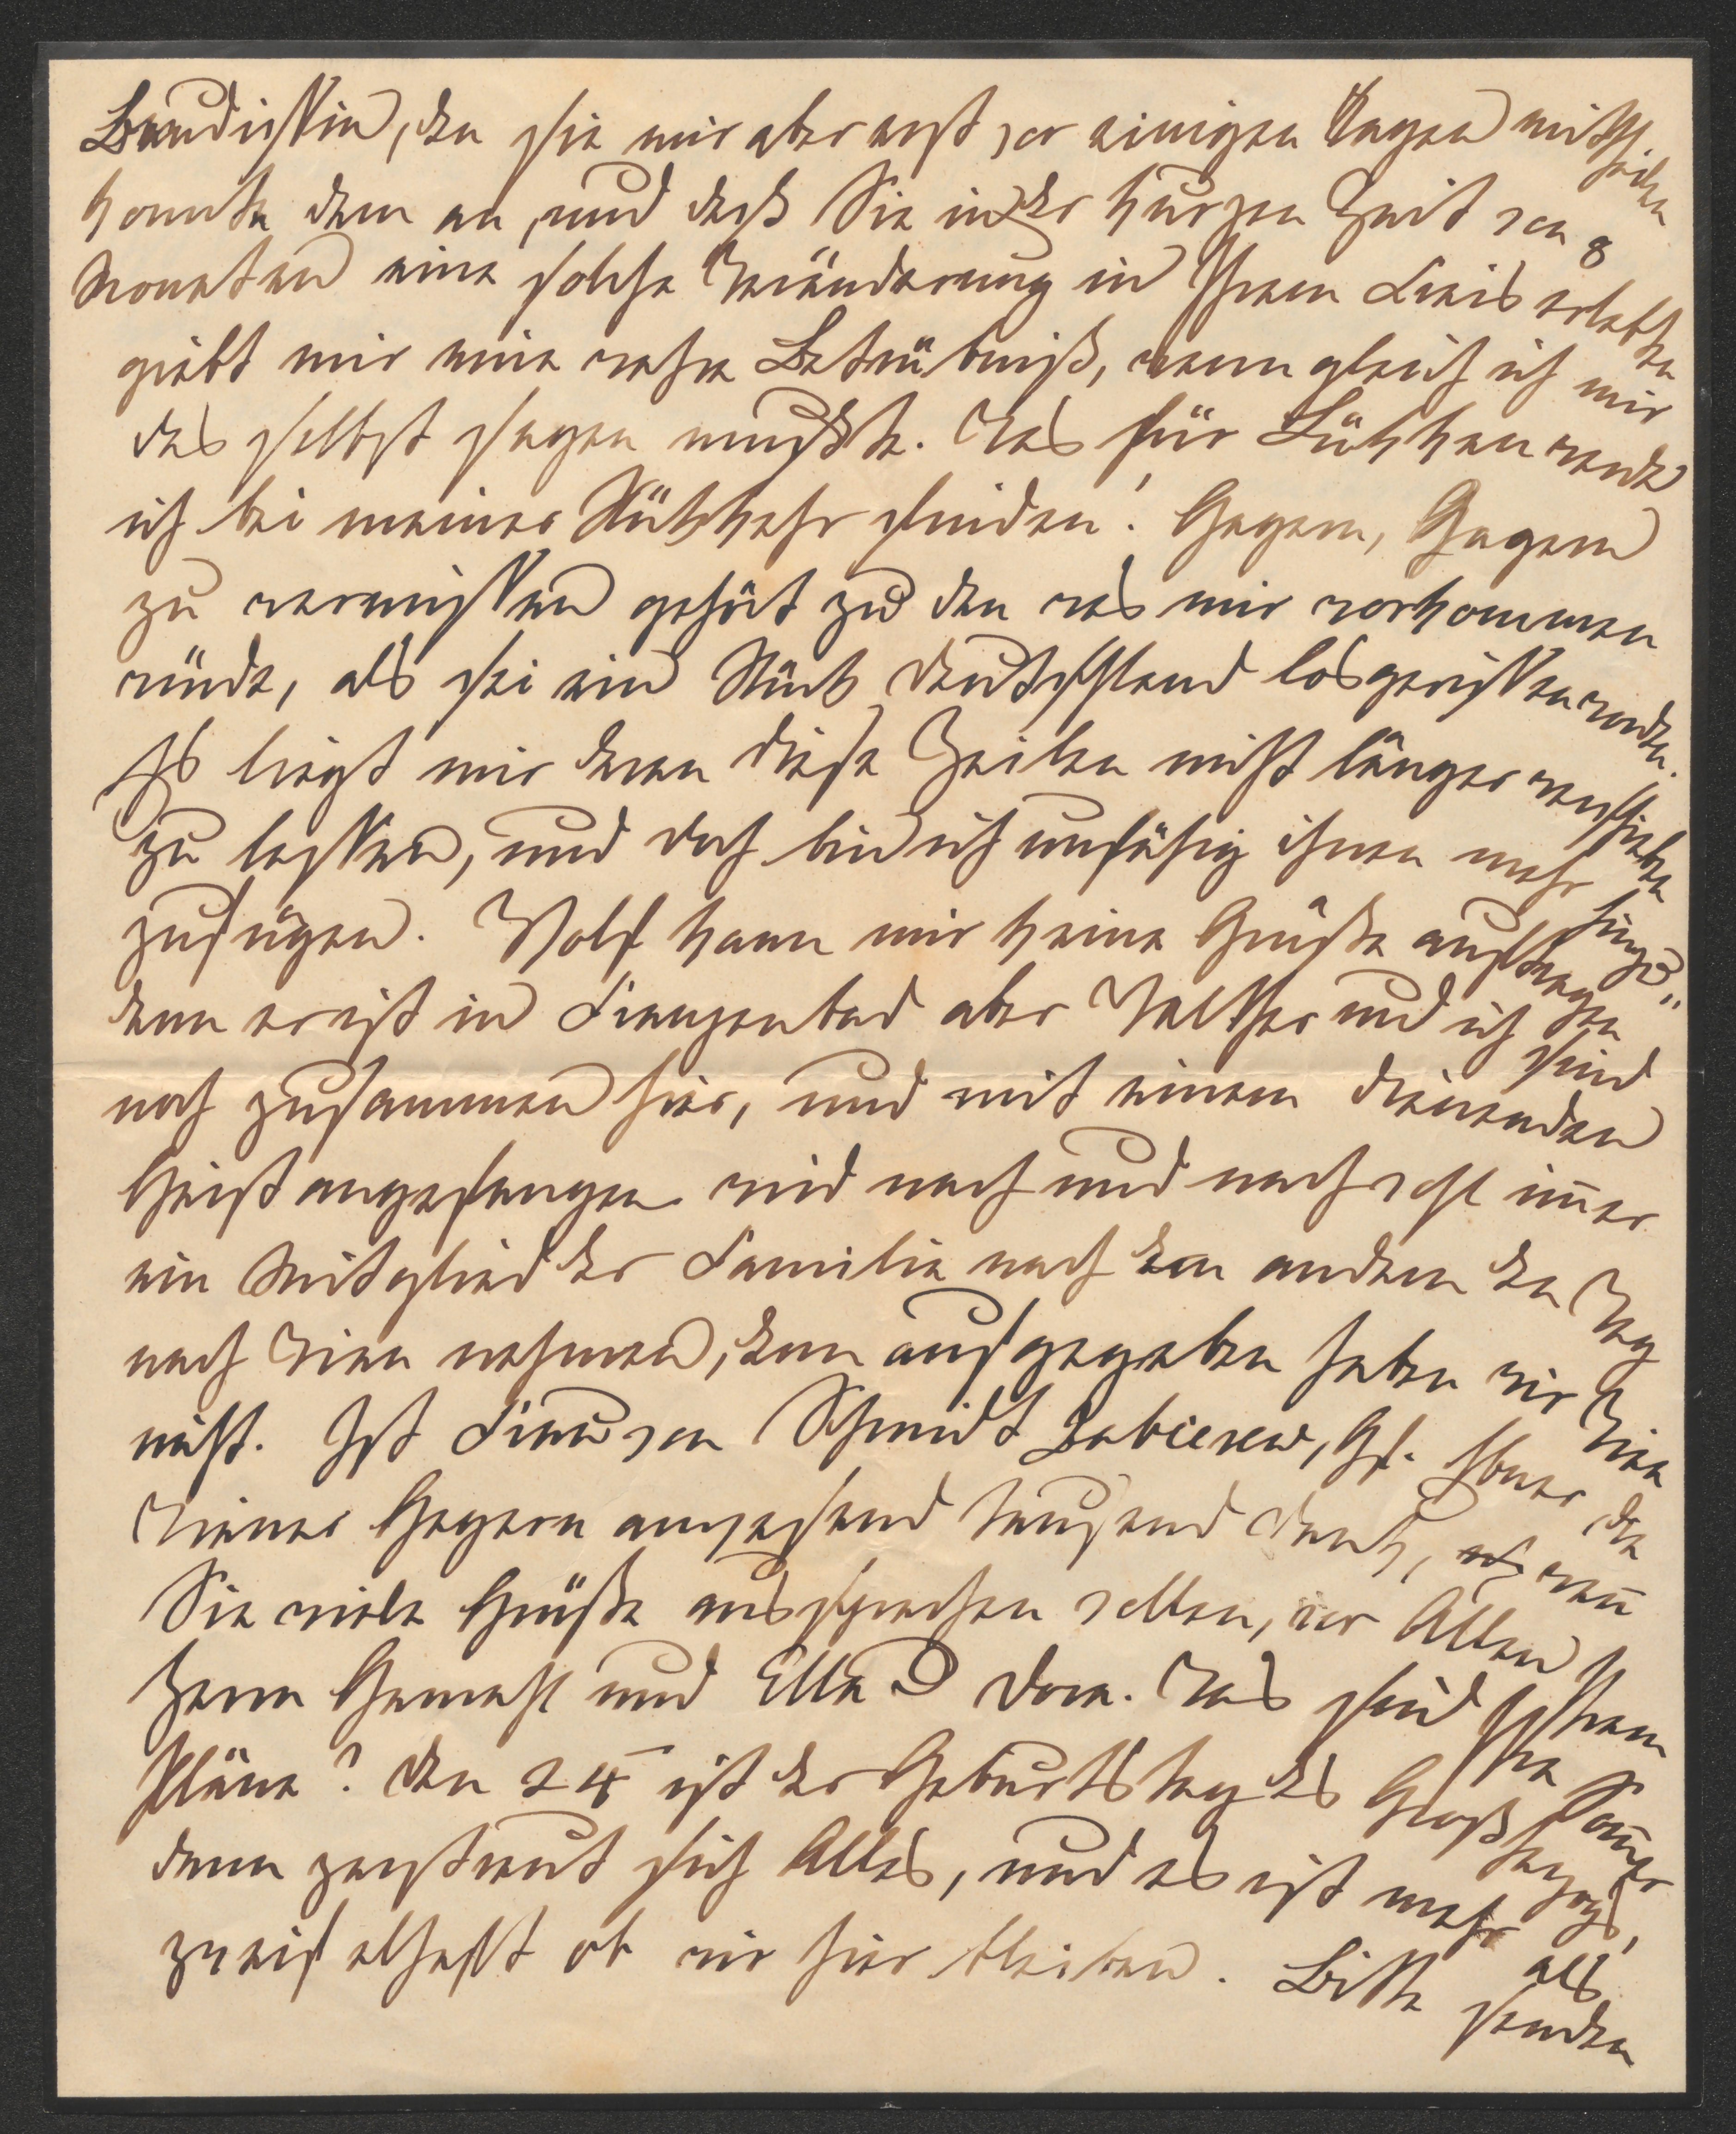 Baudissin, den sie mir aber erst vor einigen Tagen mittheilen
konnte denn an, und daß Sie in der kurzen Zeit von 8
Monaten eine solche Veränderung in Ihrem Kreis erlebten
giebt mir eine wahre Betrübniß, wenn gleich ich mir
das selbst sagen mußte. Was für Lücken werde
ich bei meiner Rückkehr finden! Gagern, Gagern
zu vermissen gehört zu den was mir vorkommen
würde, als sei ein Stück Deutschland losgerissen worden.
Es liegt mir daran diese Zeilen nicht länger verschieben
zu lassen, und doch bin ich unfähig ihnen mehr hinzu„
zufügen. Wolf kann mir keine Grüße auftragen
denn er ist in Franzenbad aber Walther und ich sind
noch zusammen hier, und mit einem dienenden
Geist angefangen wird nach und nach wohl im̅er
ein Mitglied der Familie nach dem andern den Weg
nach Wien nehmen, denn aufgegeben haben wir Wien
nicht. Ist Frau von Schmidt Zabierow, Gf. Ebner die
Wiener Gagern anwesend tausend Dank, wen̅
Sie viele Grüße aussprechen wollen, vor Allen Ihrem
Herrn Gemahl und Ella & Dora. Was sind Ihre Som̅er
Pläne? Den 24 ist der Geburtstag des Großherzogs,
dann zerstreut sich Alles, und es ist mehr als
zweifelhaft ob wir hier bleiben. Bitte senden